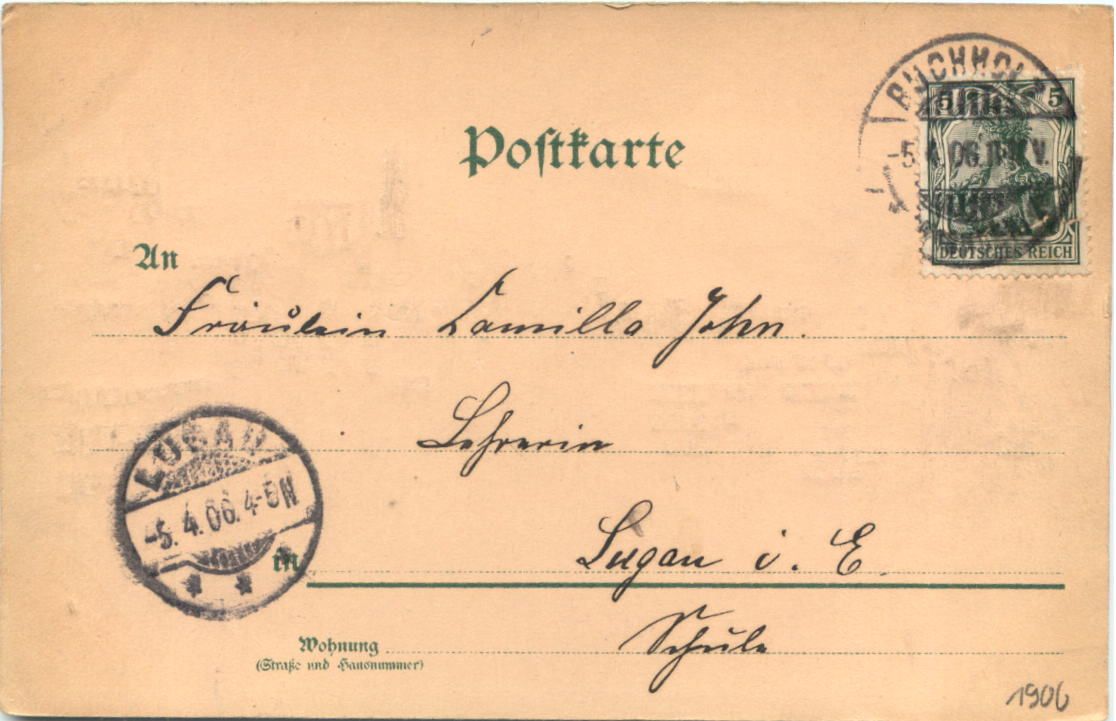 Postkarte
BUCHHOLZ
5 5
-5.4.06.
DEUTSCHES REICH
An
Fräulein Camilla John.
Lehrerin
LUGAU
-5.4.06.4-5N
in
Lugau i. E.
Wohnung
(Straße und Hausnummer)
Schule
1906